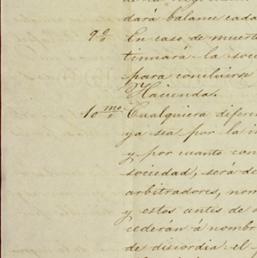 dará balance cada
9º En caso de muerte
tinuará la soc
para concluirse
Hacienda.
10mo Cualquiera difer
ya sea por la i
y por cuanto con
sociedad, será de
arbitradores, nom
y estos antes de
cederán á nombr
de discordia el